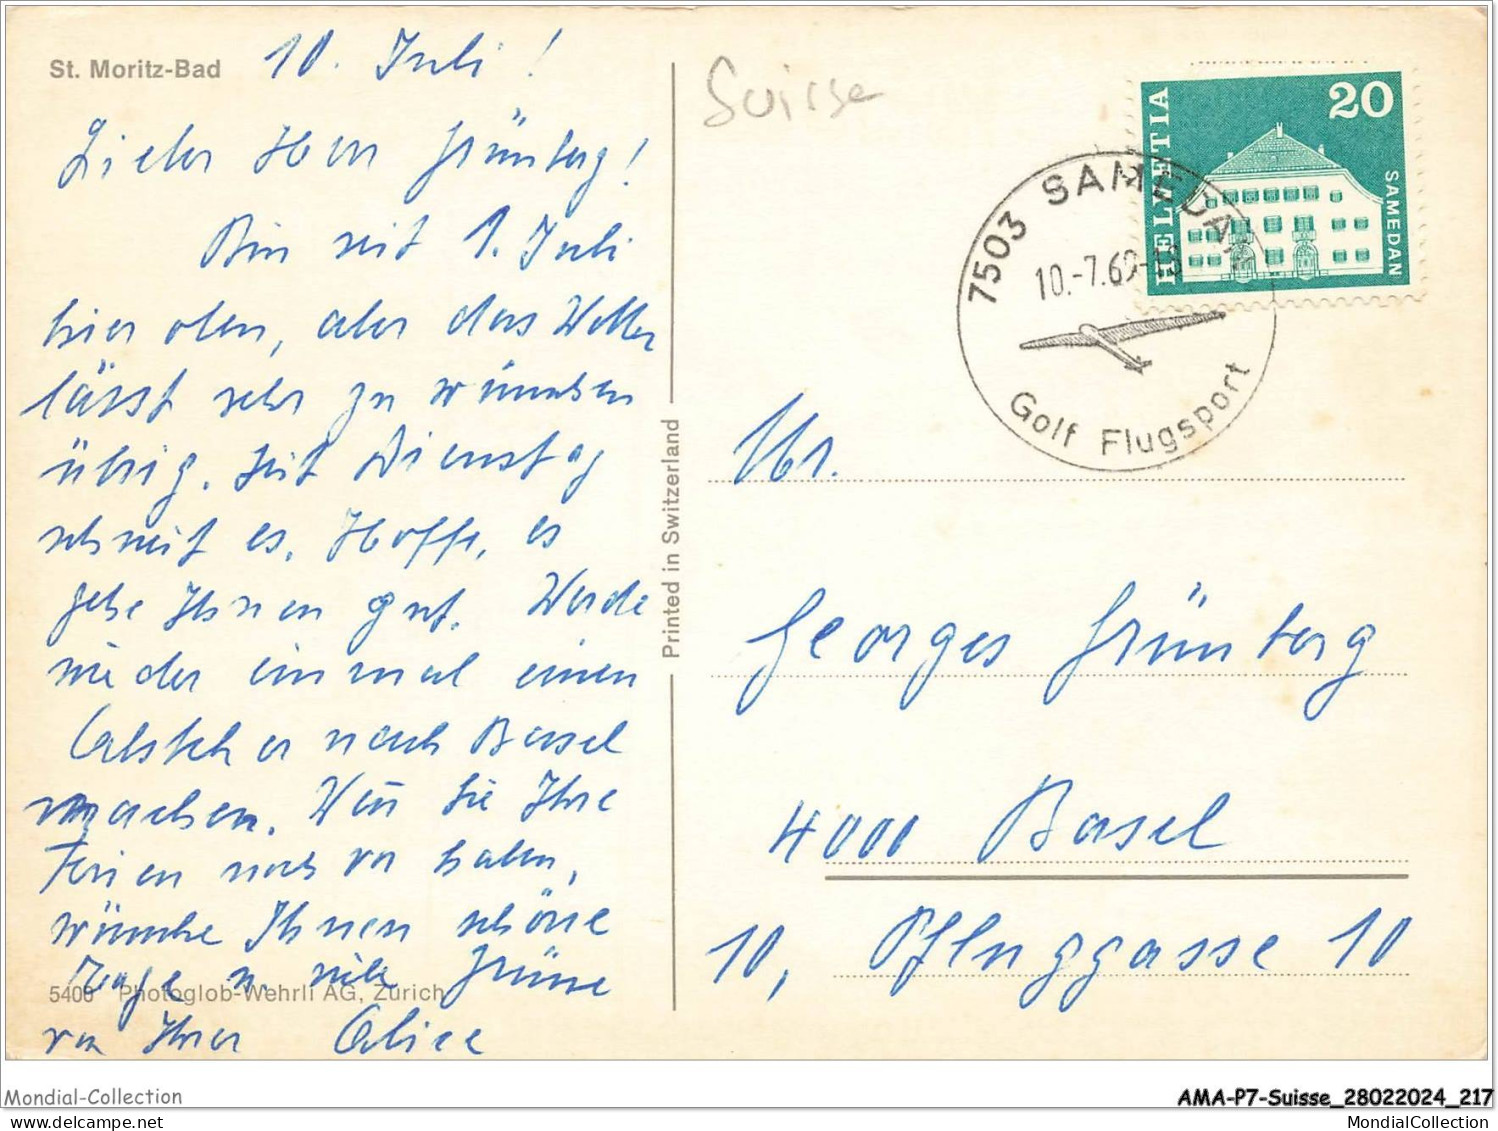 St. Moritz-Bad
10. Juli!
Lieber Herr Grünberg!
Bin seit 1. Juli
hier oben, aber das Wetter
lässt sehr zu wünschen
übrig. Seit Dienstag
schneit es. Hoffe, es
gehe Ihnen gut. Werde
wieder einmal einen
nach Basel
machen. Wenn Sie Ihre
Ferien noch vor haben,
wünsche Ihnen schöne
Tage u. viele Grüsse
von Ihrer Alice
5400 Photoglob-Wehrli AG, Zürich
Printed in Switzerland
Suisse
HELVETIA
20
SAMEDAN
7503 SAMEDAN
10.-7.69-18
Golf Flugsport
Hr.
Georges Grünberg
4000 Basel
10, Pfluggasse 10
Mondial-Collection
AMA-P7-Suisse_28022024_217
MondialCollection